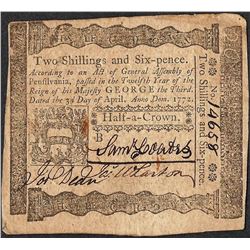 Two Shillings and Six-pence.
According to an Act of General Assembly of
Pennsylvania, passed in the Twelfth Year of the
Reign of his Majesty GEORGE the Third.
Dated the 3d Day of April, Anno Dom. 1772.
Half-a-Crown.
B
Two Shillings and Six-pence.
No 14658